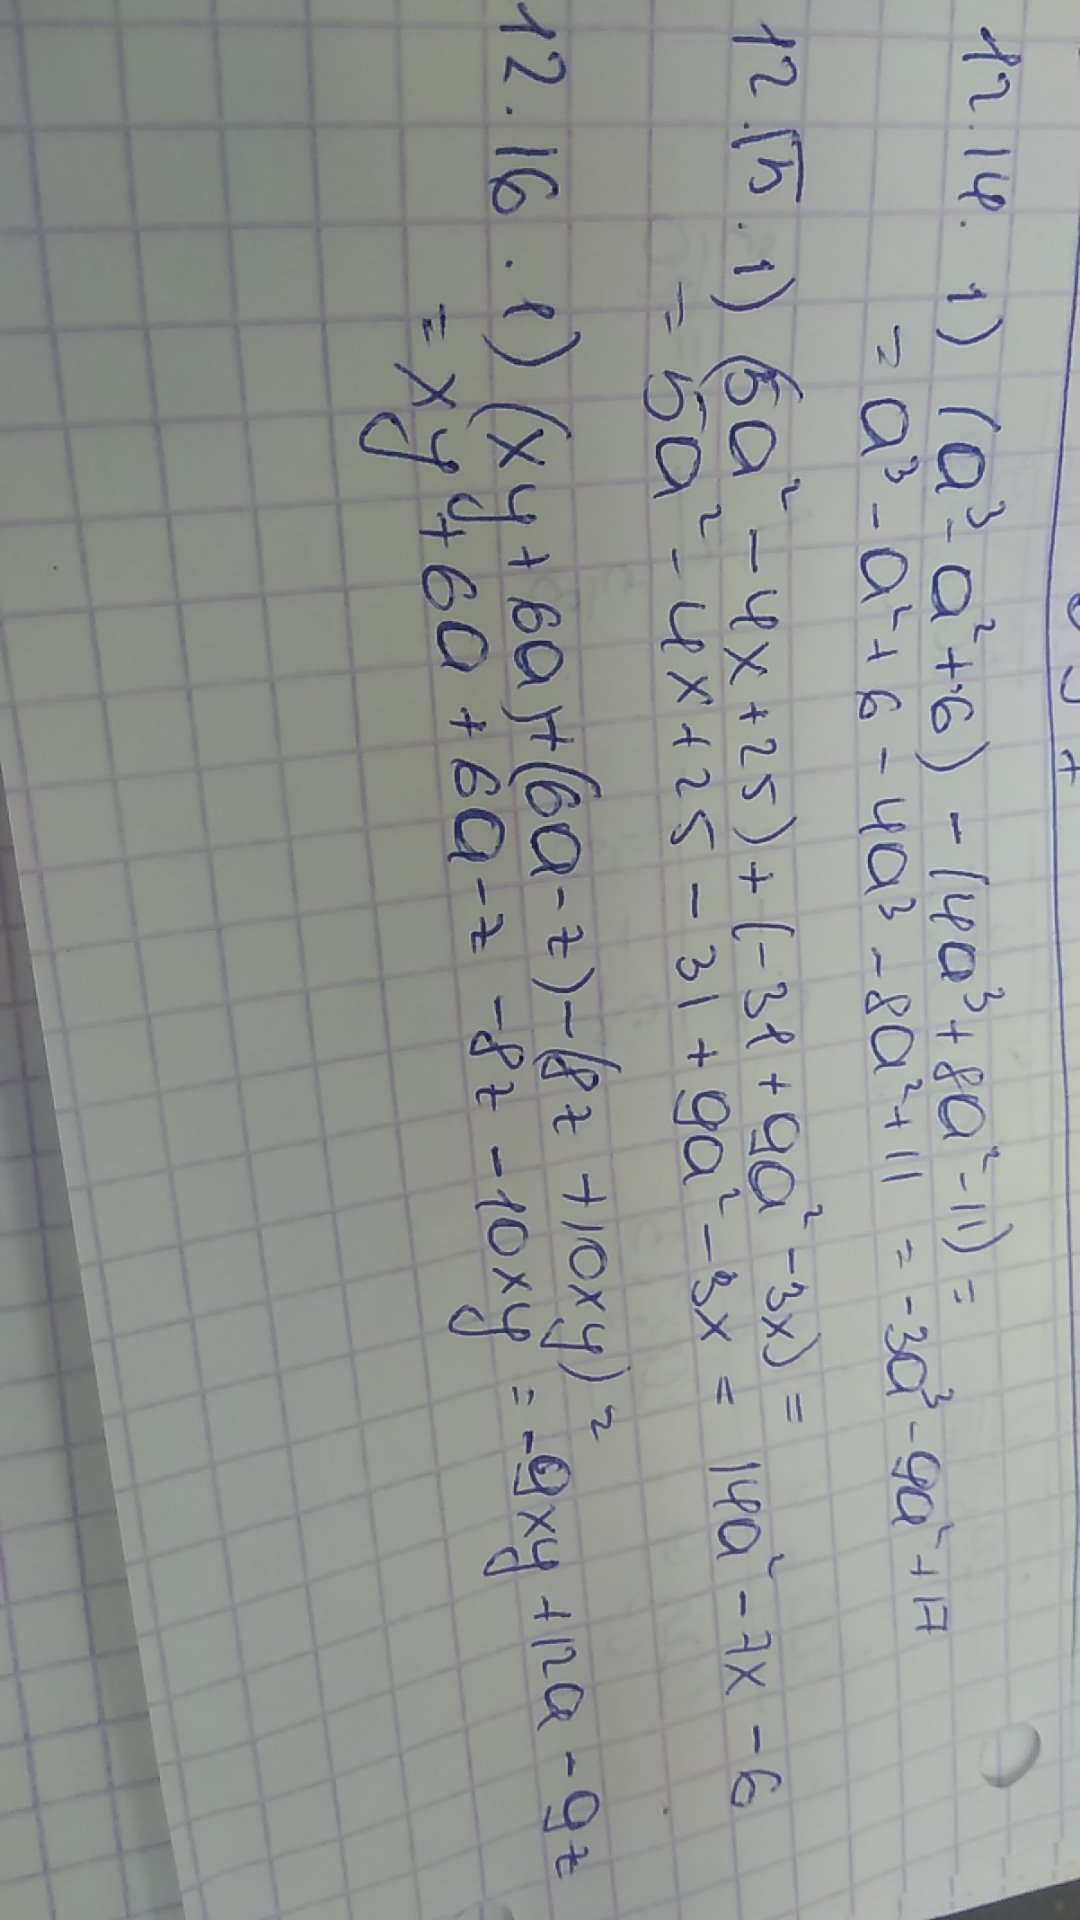 12.14. 1) (a³-a²+6) - (4a³+8a²-11) =
= a³-a²+6-4a³-8a²+11 = -3a³-9a²+17
12.15. 1) (5a²-4x+25)+(-31+9a²-3x) =
= 5a²-4x+25-31+9a²-3x = 14a²-7x-6
12.16. 1) (xy+6a)+(6a-z)-(8z+10xy) =
= xy+6a+6a-z-8z-10xy = -9xy+12a-9z